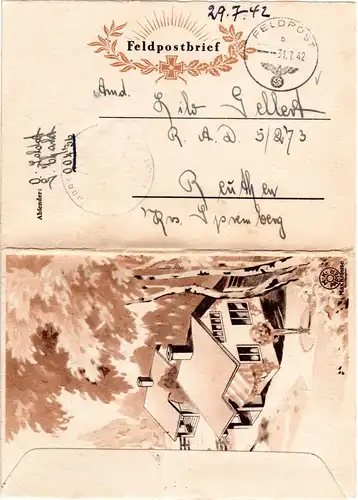 29.7.42
Feldpostbrief
FELDPOST
b
-31.7.42
Amd. Lilo Gellert
R. A. D. 5/273
Reuthen
Krs. Spremberg
Absender: